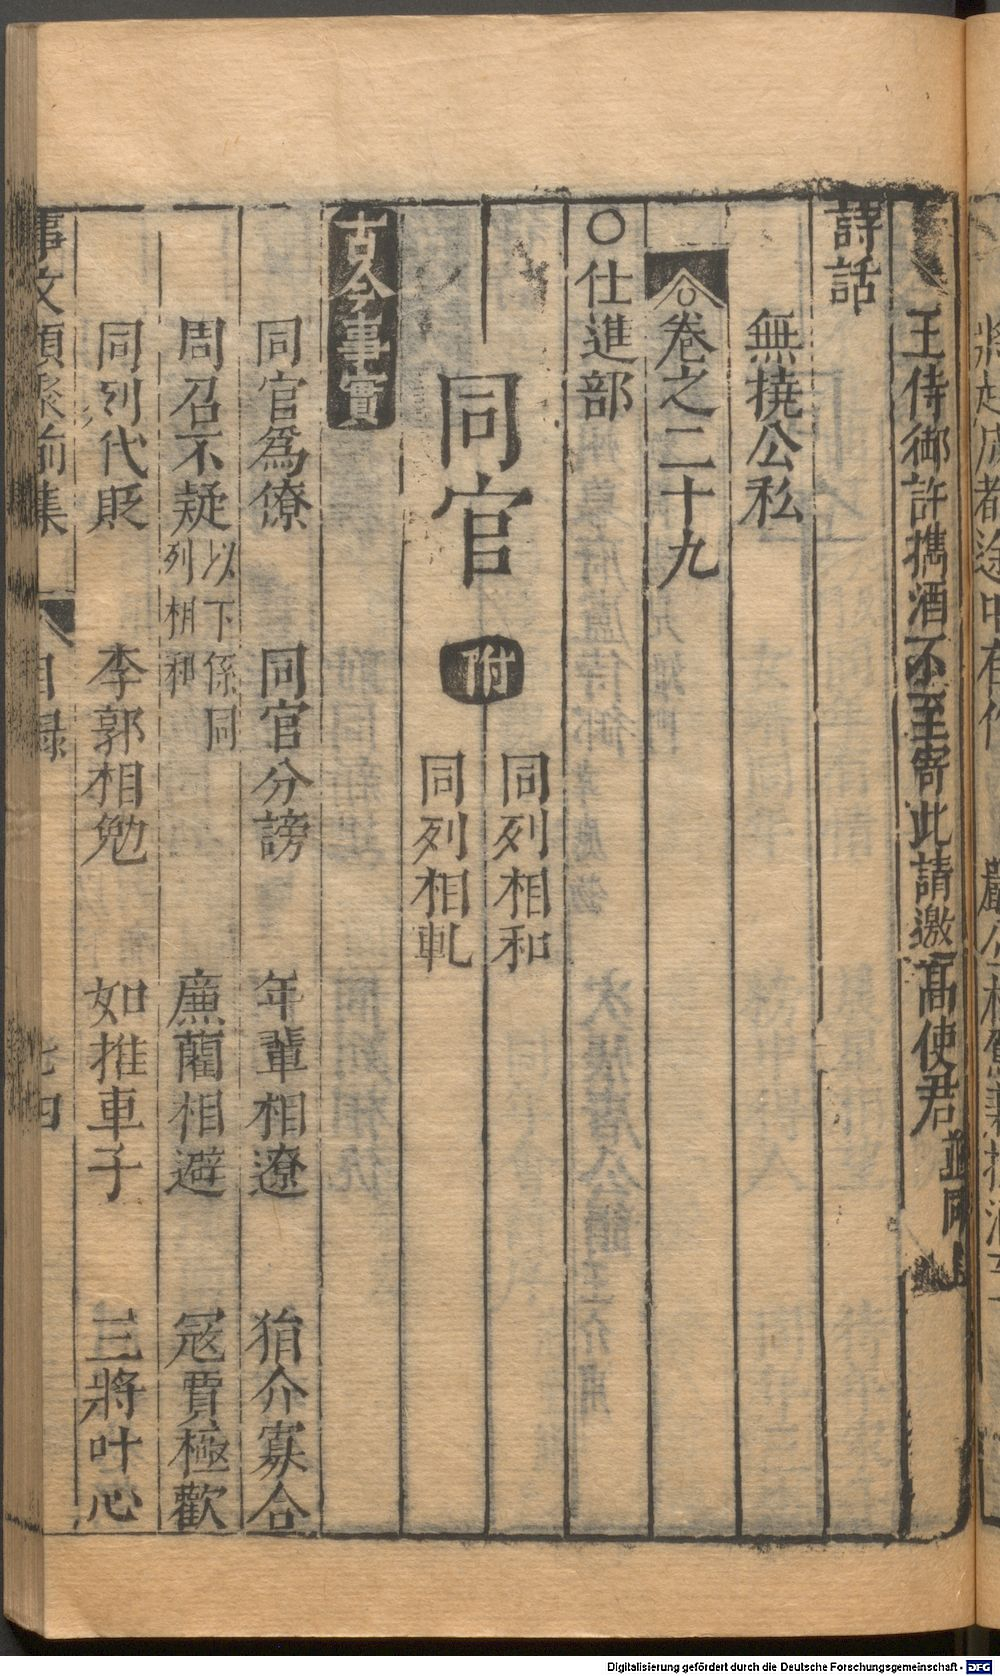 王侍御許攜酒不至寄此請邀高使君並同
詩話
無撓公私
卷之二十九
○仕進部
同官 附 同列相和
同列相軋
古今事實
同官爲僚 同官分謗 年輩相遼 狷介寡合
周召不疑 以下係同列相和 廉藺相避 寇賈極歡
同列代貶 李郭相勉 如推車子 三將叶心
事文類聚前集 目録 七四
Digitalisierung gefördert durch die Deutsche Forschungsgemeinschaft - DFG